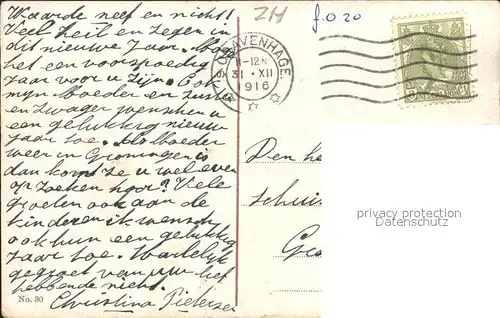 Waarde neef en nicht!
Veel heil en zegen in
dit nieuwe Jaar. Moge
het een voorspoedig
Jaar voor u zijn. Ook
mijn Moeder en Zus
en Zwager wenschen u
een gelukkig nieuw
Jaar toe. Als Moeder
weer in Groningen is
dan komt ze u wel even
op zoeken hoor? Vele
groeten ook aan de
kinderen ik wensch
ook hun een gelukkig
Jaar toe. Hartelijk
gegroet van uw lief
hebbende nicht.
Christina Pieterse
No. 30
ZH
f.0 20
'S GRAVENHAGE
12N
31 XII
1916
Den he
Schuis
Gro
privacy protection
Datenschutz